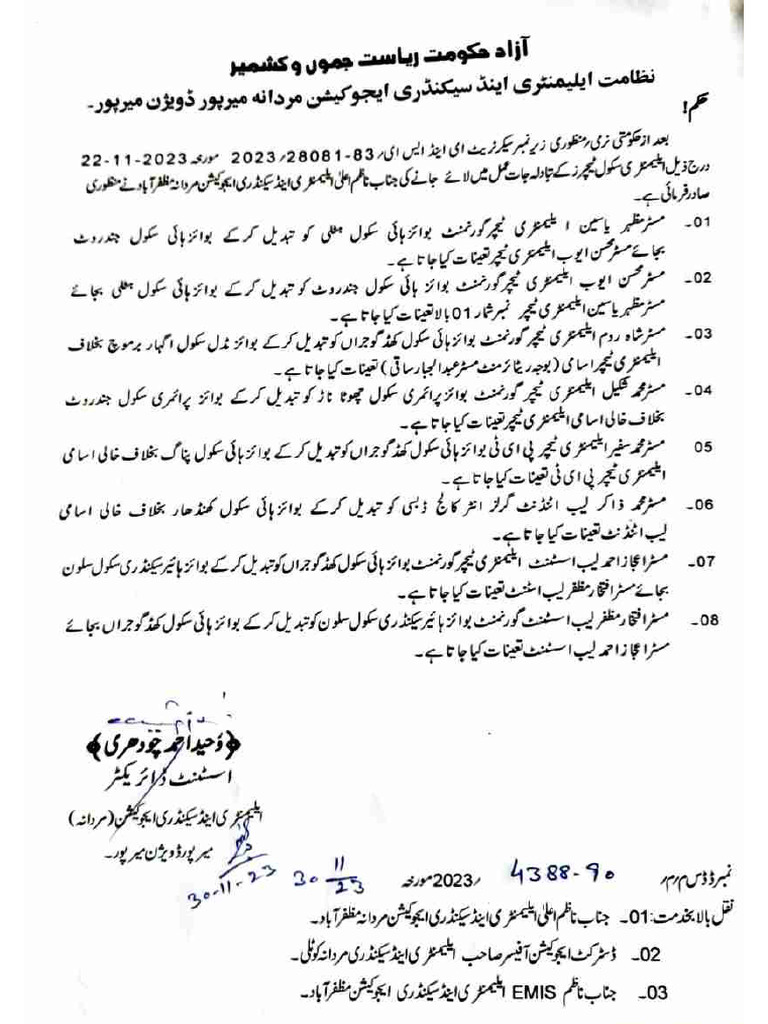 آزاد حکومت ریاست جموں و کشمیر
نظامت ایلیمنٹری اینڈ سیکنڈری ایجوکیشن مردانہ میرپور ڈویژن میرپور۔
حکم!
بعد از حکومتی نری؍ منظوری زیر نمبر سیکرٹریٹ ای اینڈ ایس ای؍ 83-28081؍ 2023 مورخہ 2023-11-22
درج ذیل ایلیمنٹری سکول ٹیچرز کے تبادلہ جات عمل میں لائے جانے کی جناب ناظم اعلیٰ ایلیمنٹری اینڈ سیکنڈری ایجوکیشن مردانہ مظفرآباد نے منظوری
صادر فرمائی ہے۔
01۔ مسٹر مظہر یاسین ایلیمنٹری ٹیچر گورنمنٹ بوائز ہائی سکول کو تبدیل کر کے بوائز ہائی سکول جندروٹ
بجائے مسٹر محسن ایوب ایلیمنٹری ٹیچر تعینات کیا جاتا ہے۔
02۔ مسٹر محسن ایوب ایلیمنٹری ٹیچر گورنمنٹ بوائز ہائی سکول جندروٹ کو تبدیل کر کے بوائز ہائی سکول بجائے
مسٹر مظہر یاسین ایلیمنٹری ٹیچر نمبر شمار 01 بالا تعینات کیا جاتا ہے۔
03۔ مسٹر شاہ روم ایلیمنٹری ٹیچر گورنمنٹ بوائز ہائی سکول کھڈ گوجراں کو تبدیل کر کے بوائز مڈل سکول اگہار برموچ بخلاف
ایلیمنٹری ٹیچر اسامی (بوجہ ریٹائرمنٹ مسٹر عبدالجبار ساقی) تعینات کیا جاتا ہے۔
04۔ مسٹر محمد شکیل ایلیمنٹری ٹیچر گورنمنٹ بوائز پرائمری سکول چھوٹا ناڑ کو تبدیل کر کے بوائز پرائمری سکول جندروٹ
بخلاف خالی اسامی ایلیمنٹری ٹیچر تعینات کیا جاتا ہے۔
05 مسٹر محمد سفیر ایلیمنٹری ٹیچر پی ای ٹی بوائز ہائی سکول کھڈ گوجراں کو تبدیل کر کے بوائز ہائی سکول پناگ بخلاف خالی اسامی
ایلیمنٹری ٹیچر پی ای ٹی تعینات کیا جاتا ہے۔
06۔ مسٹر محمد ذاکر لیب اٹنڈنٹ گرلز انٹر کالج ڈبسی کو تبدیل کر کے بوائز ہائی سکول کھنڈھار بخلاف خالی اسامی
لیب اٹنڈنٹ تعینات کیا جاتا ہے۔
07۔ مسٹر اعجاز احمد لیب اسسٹنٹ ایلیمنٹری ٹیچر گورنمنٹ بوائز ہائی سکول کھڈ گوجراں کو تبدیل کر کے بوائز ہائیر سیکنڈری سکول سلون
بجائے مسٹر افتخار مظفر لیب اسٹنٹ تعینات کیا جاتا ہے۔
08۔ مسٹر افتخار مظفر لیب اسسٹنٹ گورنمنٹ بوائز ہائیر سیکنڈری سکول سلون کو تبدیل کر کے بوائز ہائی سکول کھڈ گوجراں بجائے
مسٹر اعجاز احمد لیب اسسٹنٹ تعینات کیا جاتا ہے۔
﴿وحید احمد چودھری﴾
اسسٹنٹ ڈائریکٹر
ایلیمنٹری اینڈ سیکنڈری ایجوکیشن (مردانہ)
میرپور ڈویژن میرپور۔
30-11-23
نمبر ڈ ڈ س م ر م؍ 4388-90 ؍2023 مورخہ 30 11/23
نقل بالا بخدمت: 01۔ جناب ناظم اعلیٰ ایلیمنٹری اینڈ سیکنڈری ایجوکیشن مردانہ مظفرآباد۔
02۔ ڈسٹرکٹ ایجوکیشن آفیسر صاحب ایلیمنٹری اینڈ سیکنڈری مردانہ کوٹلی۔
03۔ جناب ناظم EMIS ایلیمنٹری اینڈ سیکنڈری ایجوکیشن مظفرآباد۔